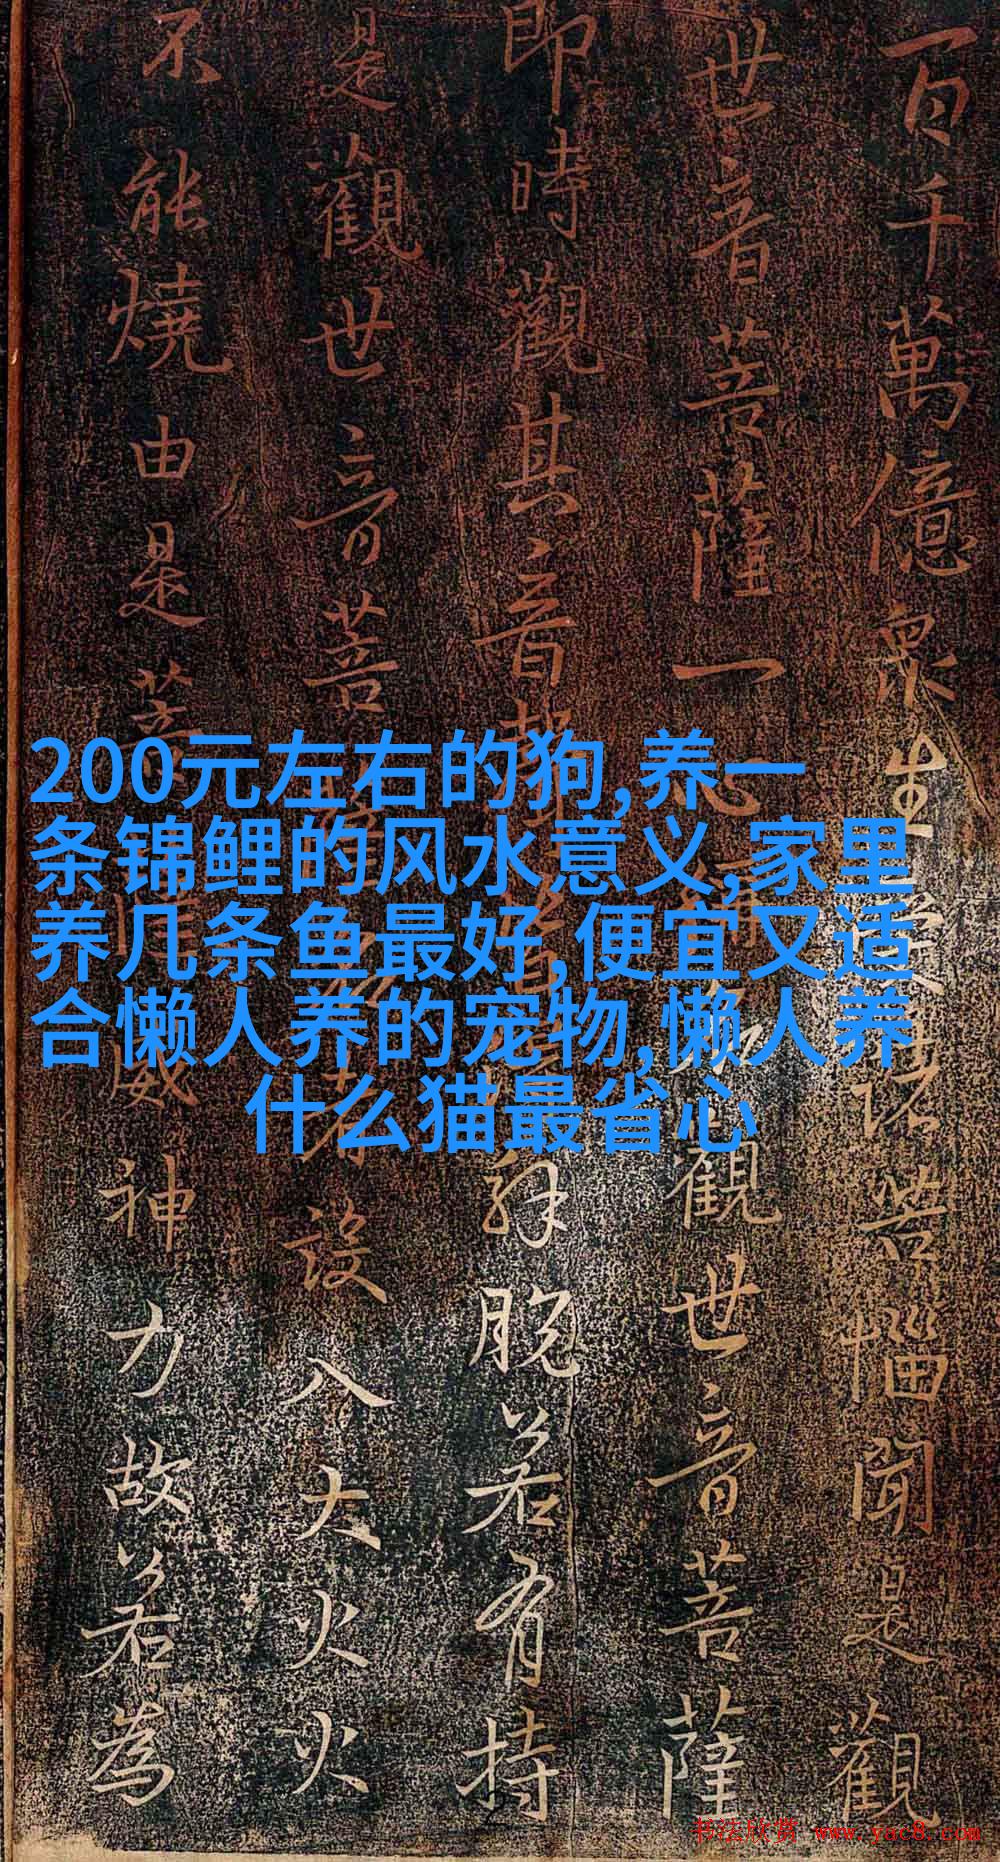 百千萬億眾生受諸苦惱聞是觀
世音菩薩一心稱名觀世音菩薩
即時觀其音聲皆得解脫若有持
是觀世音菩薩名者設入大火火
不能燒由是菩薩威神力故若為
200元左右的狗,养一
条锦鲤的风水意义,家里
养几条鱼最好,便宜又适
合懒人养的宠物,懒人养
什么猫最省心
书法欣赏 www.yac8.com